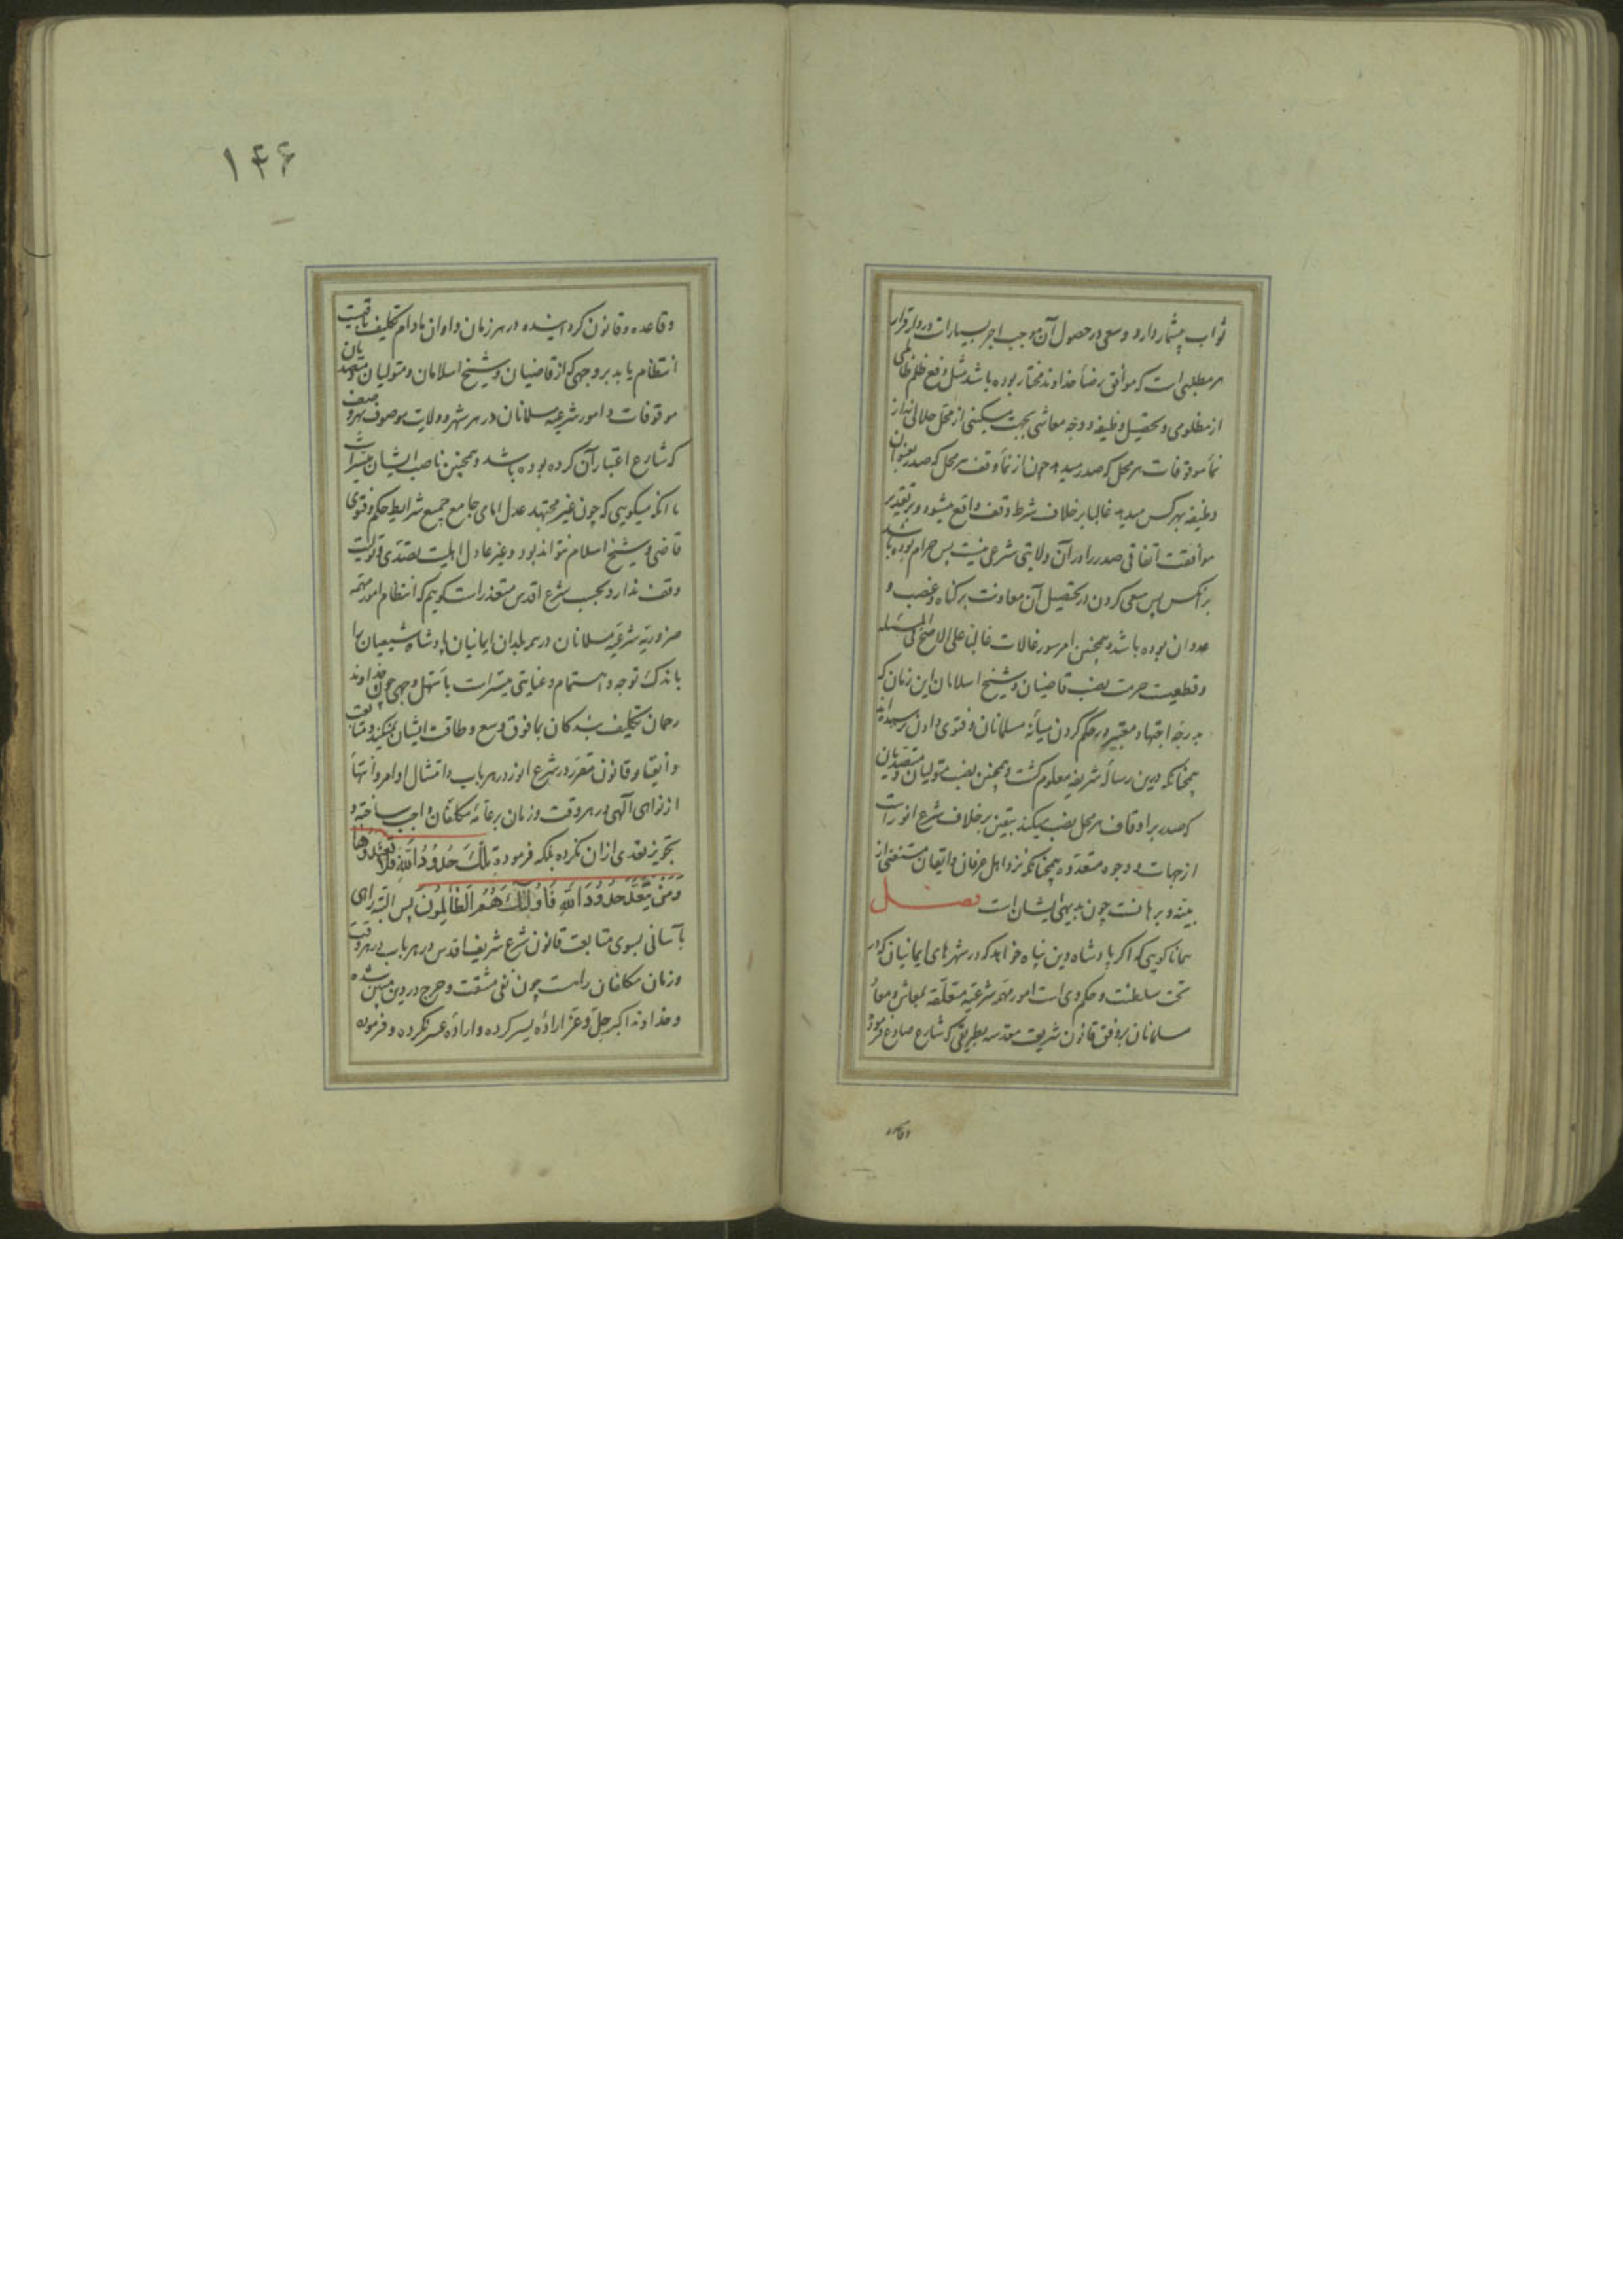 ثواب بیشمار دارد و سعی در حصول آن موجب اجر بسیارست در دار قرار
هر مطلبی است که موافق رضاء خداوند مختار بوده باشد مثل دفع ظلم ظالمی
از مظلومی و تحصیل وظیفه و وجه معاشی بجهت مسکینی از محل حلالی نه از
نماء موقوفات هر محل که صدر میدهد چون از نماء وقف هر محل که صدر بعنوان
وظیفه بهر کس میدهد غالبا بر خلاف شرط وقف واقع میشود و بر تقدیر
موافقت اتفاقی صدر را در آن ولایتی شرعی نیست پس حرام بوده باشد
بر آنکس پس سعی کردن در تحصیل آن معاونت بر گناه و غصب و
عدوان بوده باشد و همچنین امر سیورغالات غالبا علی الاصح فی المسئله
و قطعیت حرمت نصب قاضیان و شیخ اسلامان این زمان که
بدرجه اجتهاد معتبر در حکم کردن میانه مسلمانان و فتوی دادن نرسیده‌اند
همچنانکه درین رساله شریفه معلوم گشت و همچنین نصب متولیان و متصدیان
که صدر بر اوقاف هر محل نصب میکند بیقین بر خلاف شرع انور است
از جهات و وجوه متعدده همچنانکه نزد اهل عرفان و ایقان مستغنی از
بینه و برهانست چون بدیهی ایشان است فصل
همانا گویی که اگر پادشاه دین پناه خواهد که در شهرهای ایمانیان که در
تحت سلطنت و حکم وی است امور مهمه شرعیه متعلقه بمعاش و معاد
مسلمانان بر وفق قانون شریعت مقدسه بطریقی که شارع صادع فرموده
وقاعده
۱۴۶
و قاعده و قانون گردانیده در هر زمان و اوان مادام تکلیف باقیست
انتظام یابد بر وجهی که از قاضیان و شیخ اسلامان و متولیان و متصدیان
موقوفات و امور شرعیه مسلمانان در هر شهر و ولایت موصوف بهر وصف
که شارع اعتبار آن کرده بوده باشد و همچنین ناصب ایشان میسر است
با آنکه میگویی که چون غیر مجتهد عدل امامی جامع جمیع شرایط حکم و فتوی
قاضی و شیخ اسلام نتواند بود و غیر عادل اهلیت تصدی و تولیت
وقف ندارد بحسب شرع اقدس متعذر است گویم که انتظام امور مهمه
ضروریه شرعیه مسلمانان در هر بلدان ایمانیان پادشاه شیعیان را
باندک توجه و اهتمام و عنایتی میسر است باسهل وجهی چون خداوند
رحمان تکلیف بندگان بما فوق وسع و طاقت ایشان نمیکند و متابعت
و ایقاء و قانون مقرر در شرع انور در هر باب و امتثال اوامر و انتهاء
از نواهی الهی در هر وقت و زمان بر عامه مکلفان واجب ساخته و
تجویز تعدی از ان نکرده بلکه فرموده تِلْكَ حُدُودُ اللهِ فَلَا تَعْتَدُوهَا
وَمَنْ يَتَعَدَّ حُدُودَ اللهِ فَاُولٰئِكَ هُمُ الظَّالِمُونَ پس البته راهی
بآسانی بسوی متابعت قانون شرع شریف اقدس در هر باب در هر وقت
و زمان مکلفان راست چون نفی مشقت و حرج در دین مبین شده
و خداوند اکبر جل و عز اراده یسر کرده و اراده عسر نکرده و فرموده